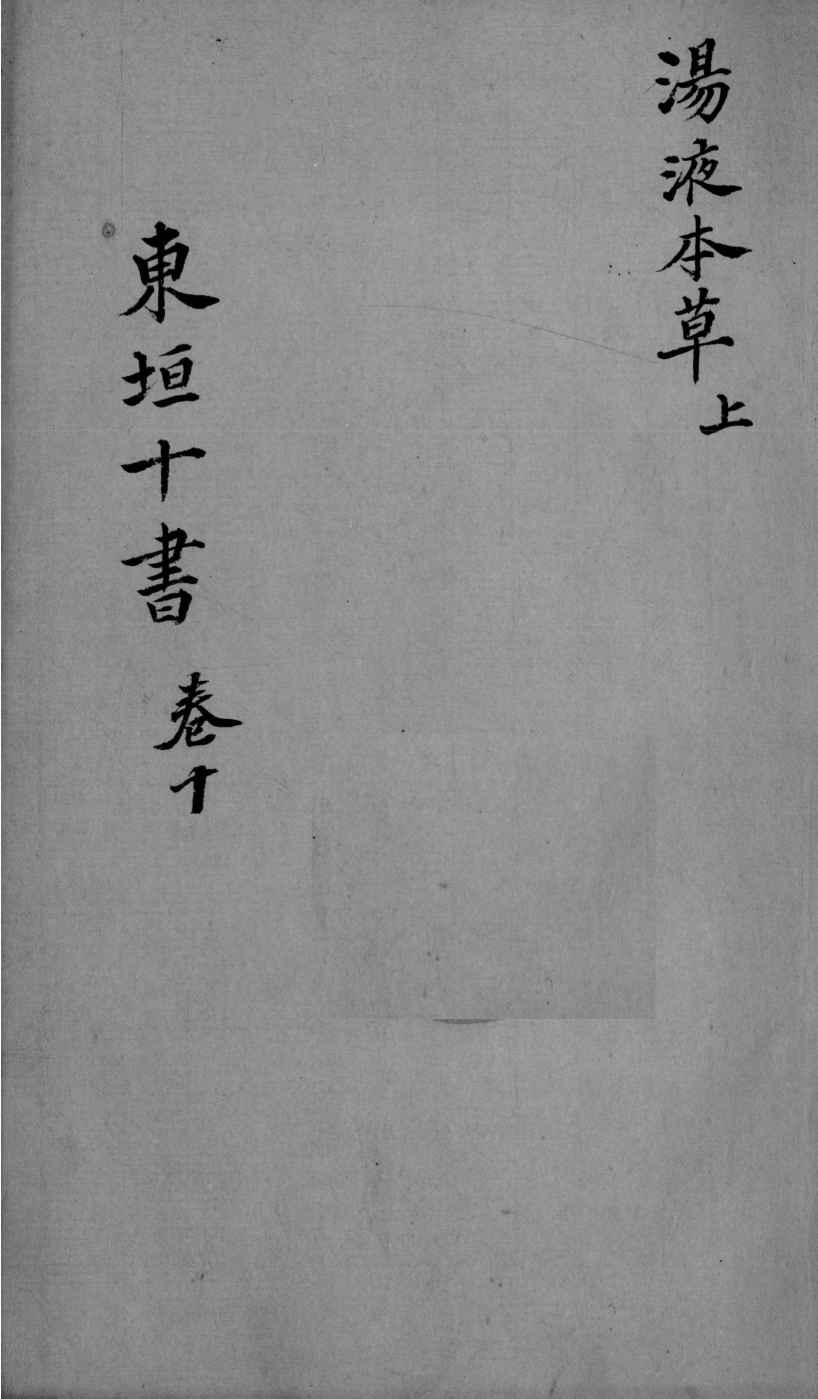 湯液本草上
東垣十書 卷十